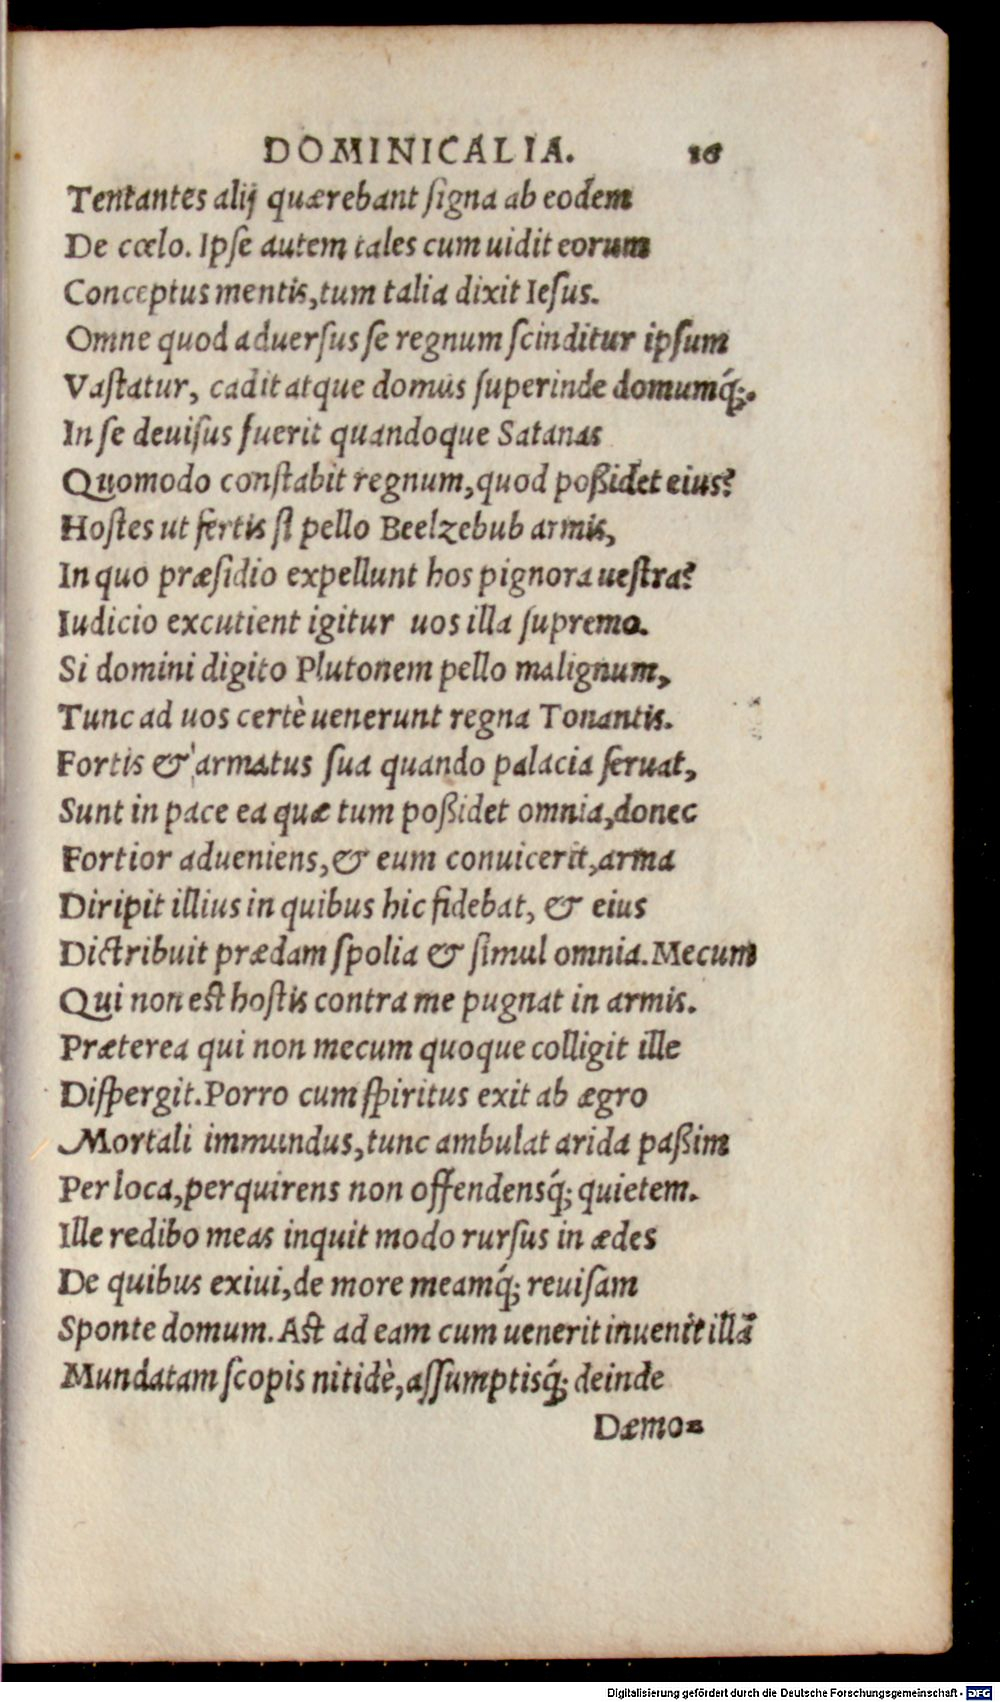 DOMINICALIA. 16
Tentantes alij quærebant ſigna ab eodem
De cœlo. Ipſe autem tales cum uidit eorum
Conceptus mentis, tum talia dixit Ieſus.
Omne quod aduerſus ſe regnum ſcinditur ipſum
Vaſtatur, cadit atque domus ſuperinde domumq́;.
In ſe deuiſus fuerit quandoque Satanas
Quomodo conſtabit regnum, quod poßidet eius?
Hoſtes ut fertis ſi pello Beelzebub armis,
In quo præſidio expellunt hos pignora ueſtra?
Iudicio excutient igitur uos illa ſupremo.
Si domini digito Plutonem pello malignum,
Tunc ad uos certè uenerunt regna Tonantis.
Fortis & armatus ſua quando palacia ſeruat,
Sunt in pace ea quæ tum poßidet omnia, donec
Fortior adueniens, & eum conuicerit, arma
Diripit illius in quibus hic fidebat, & eius
Dictribuit prædam ſpolia & ſimul omnia. Mecum
Qui non eſt hoſtis contra me pugnat in armis.
Præterea qui non mecum quoque colligit ille
Diſpergit. Porro cum ſpiritus exit ab ægro
Mortali immundus, tunc ambulat arida paßim
Per loca, perquirens non offendensq́; quietem.
Ille redibo meas inquit modo rurſus in ædes
De quibus exiui, de more meamq́; reuiſam
Sponte domum. Aſt ad eam cum uenerit inuenit illã
Mundatam ſcopis nitidè, aſſumptisq́; deinde
Dæmo⸗
Digitalisierung gefördert durch die Deutsche Forschungsgemeinschaft - DFG